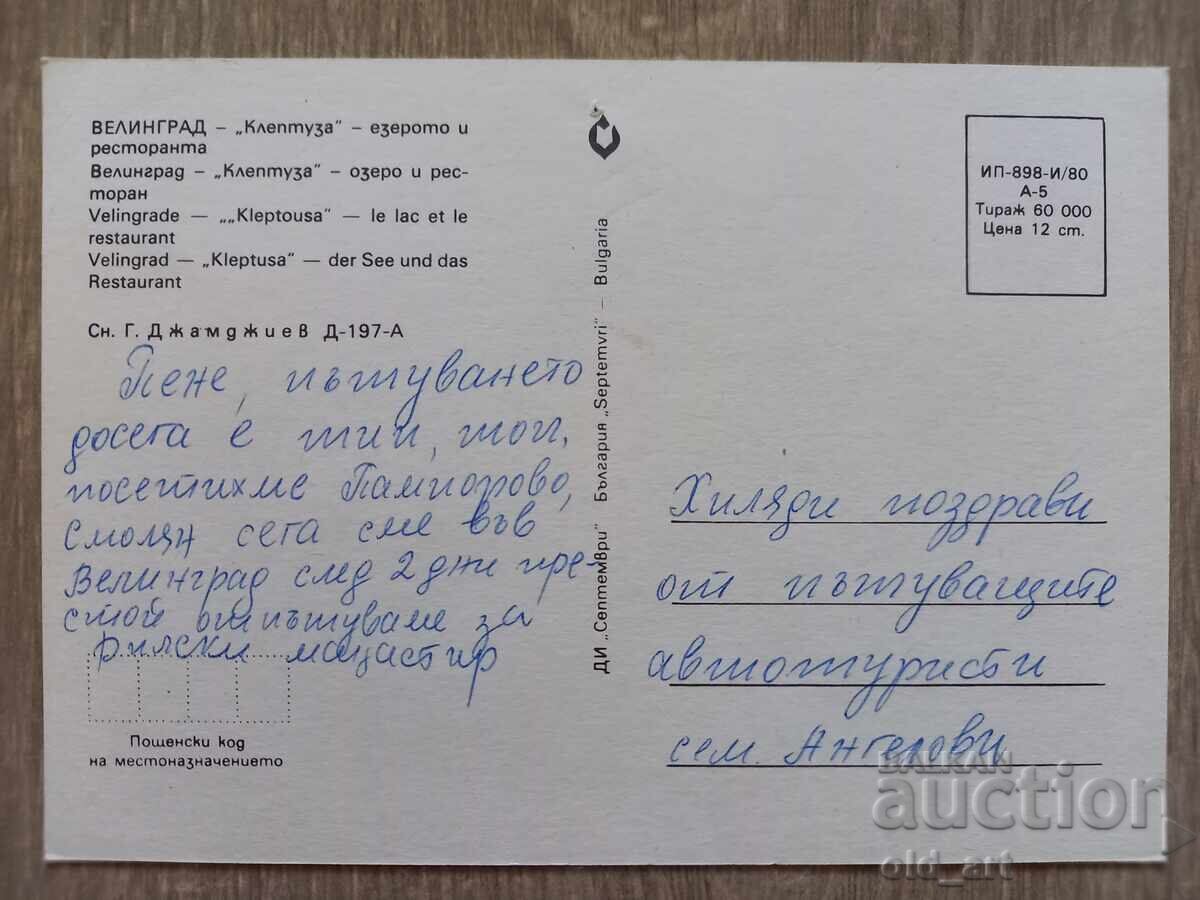 ВЕЛИНГРАД – „Клептуза" – езерото и
ресторанта
Велинград – „Клептуза" – озеро и рес-
торан
Velingrade — „„Kleptousa" — le lac et le
restaurant
Velingrad — „Kleptusa" — der See und das
Restaurant
Сн. Г. Джамджиев Д-197-А
Пене, пътуването
досега е тип, топ,
посетихме Пампорово,
Смолян сега сме във
Велинград след 2 дни пре-
стой отпътуваме за
Рилски манастир
Пощенски код
на местоназначението
ДИ „Септември" България "Septemvri" – Bulgaria
ИП-898-И/80
А-5
Тираж 60 000
Цена 12 ст.
Хиляди поздрави
от пътуващите
автотуристи
сем. Ангелови
BALKAN
auction
old_art